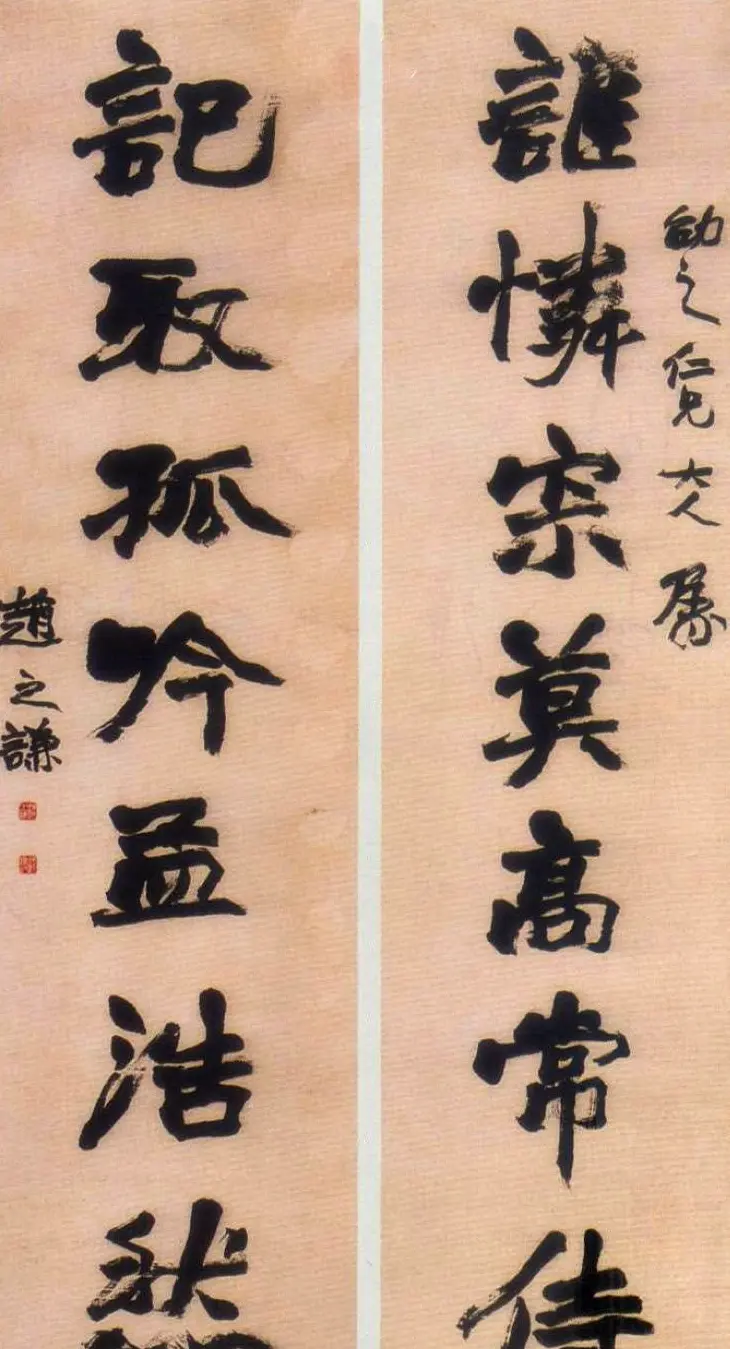 之仁兄大人屬
誰憐宗莫高常侍
記取孤吟孟浩然
趙之謙